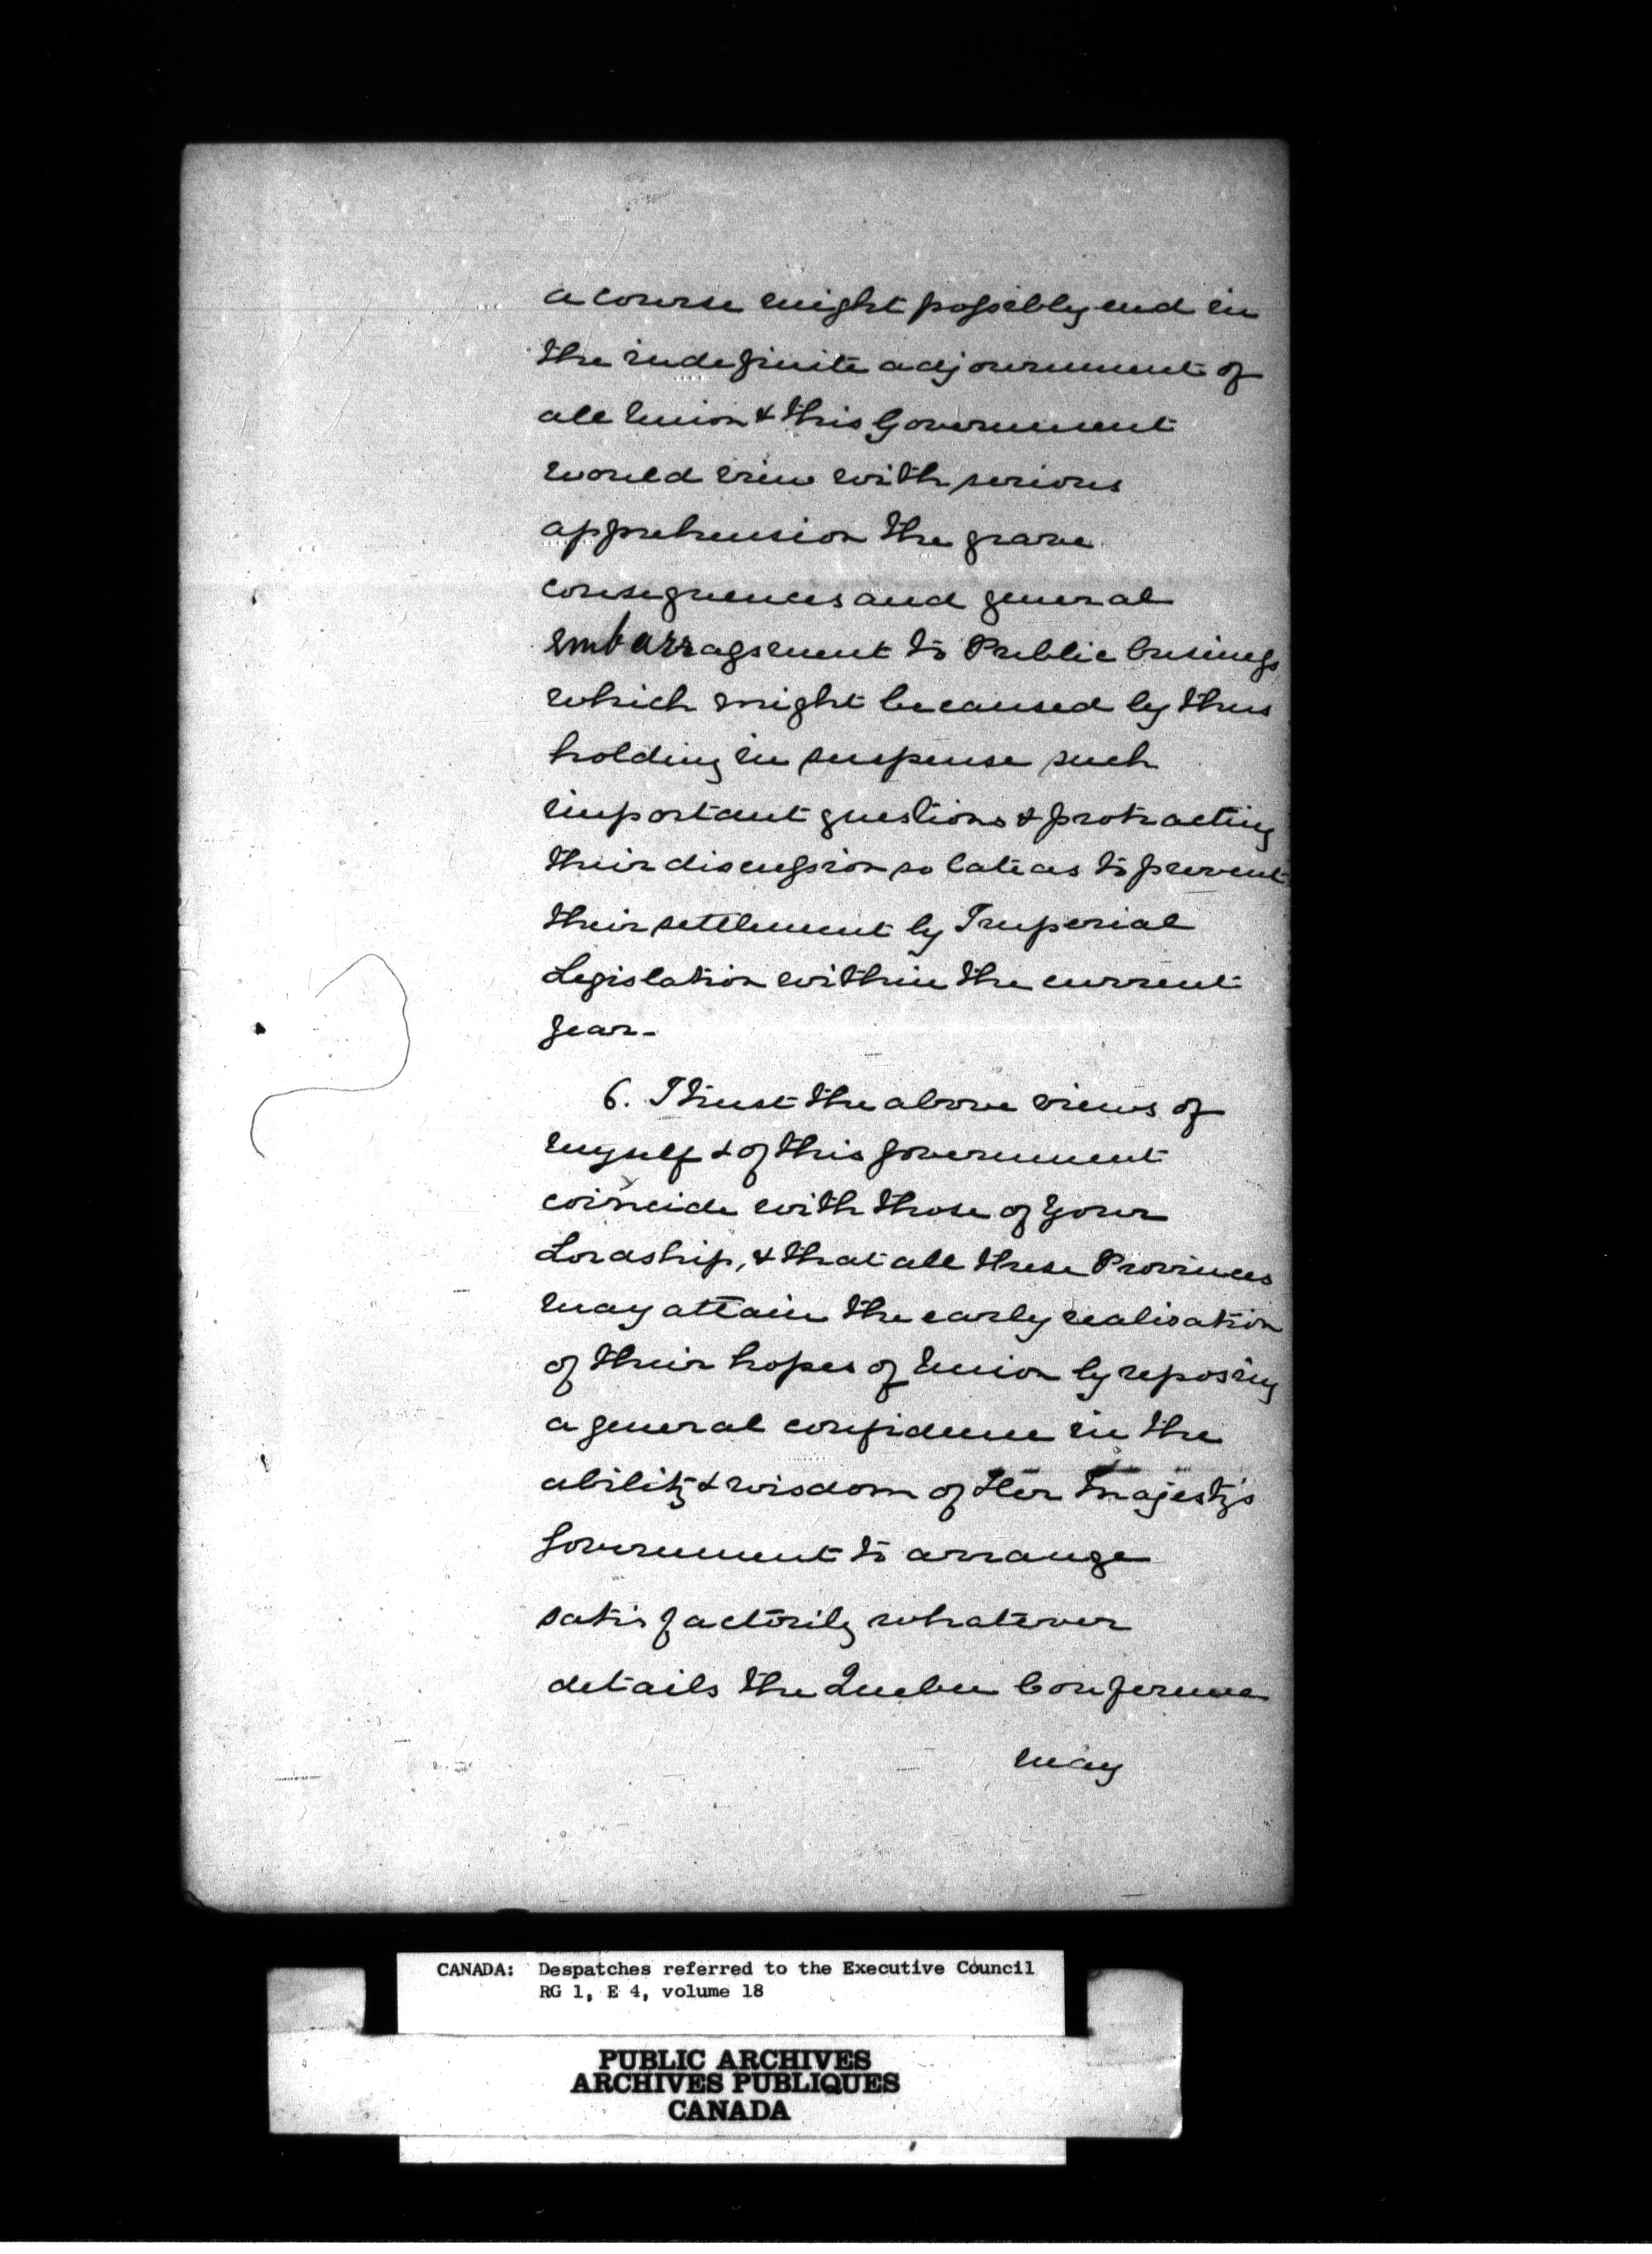 a course might possibly end in
the indefinite adjournment of
all Union & this Government
would view with serious
apprehension the grave
consequences and general
embarrassment to Public business
which might be caused by thus
holding in suspense such
important questions & protracting
their discussion so late as to prevent
their settlement by Imperial
Legislation within the current
year -
6. I trust the above views of
myself & of this Government
coincide with those of Your
Lordship, & that all these Provinces
may attain the early realisation
of their hopes of Union by reposing
a general confidence in the
ability & wisdom of Her Majesty's
Government to arrange
satisfactorily whatever
details the Quebec Conference
may
CANADA: Despatches referred to the Executive Council
RG 1, E 4, volume 18
PUBLIC ARCHIVES
ARCHIVES PUBLIQUES
CANADA